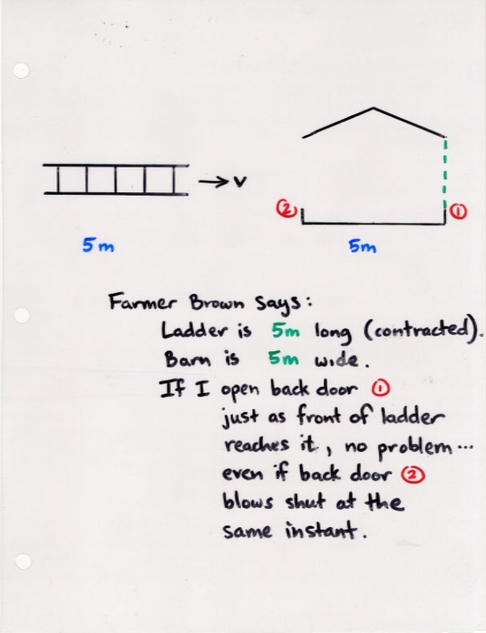 v
② ①
5m 5m
Farmer Brown says:
Ladder is 5m long (contracted).
Barn is 5m wide.
If I open back door ①
just as front of ladder
reaches it, no problem...
even if back door ②
blows shut at the
same instant.